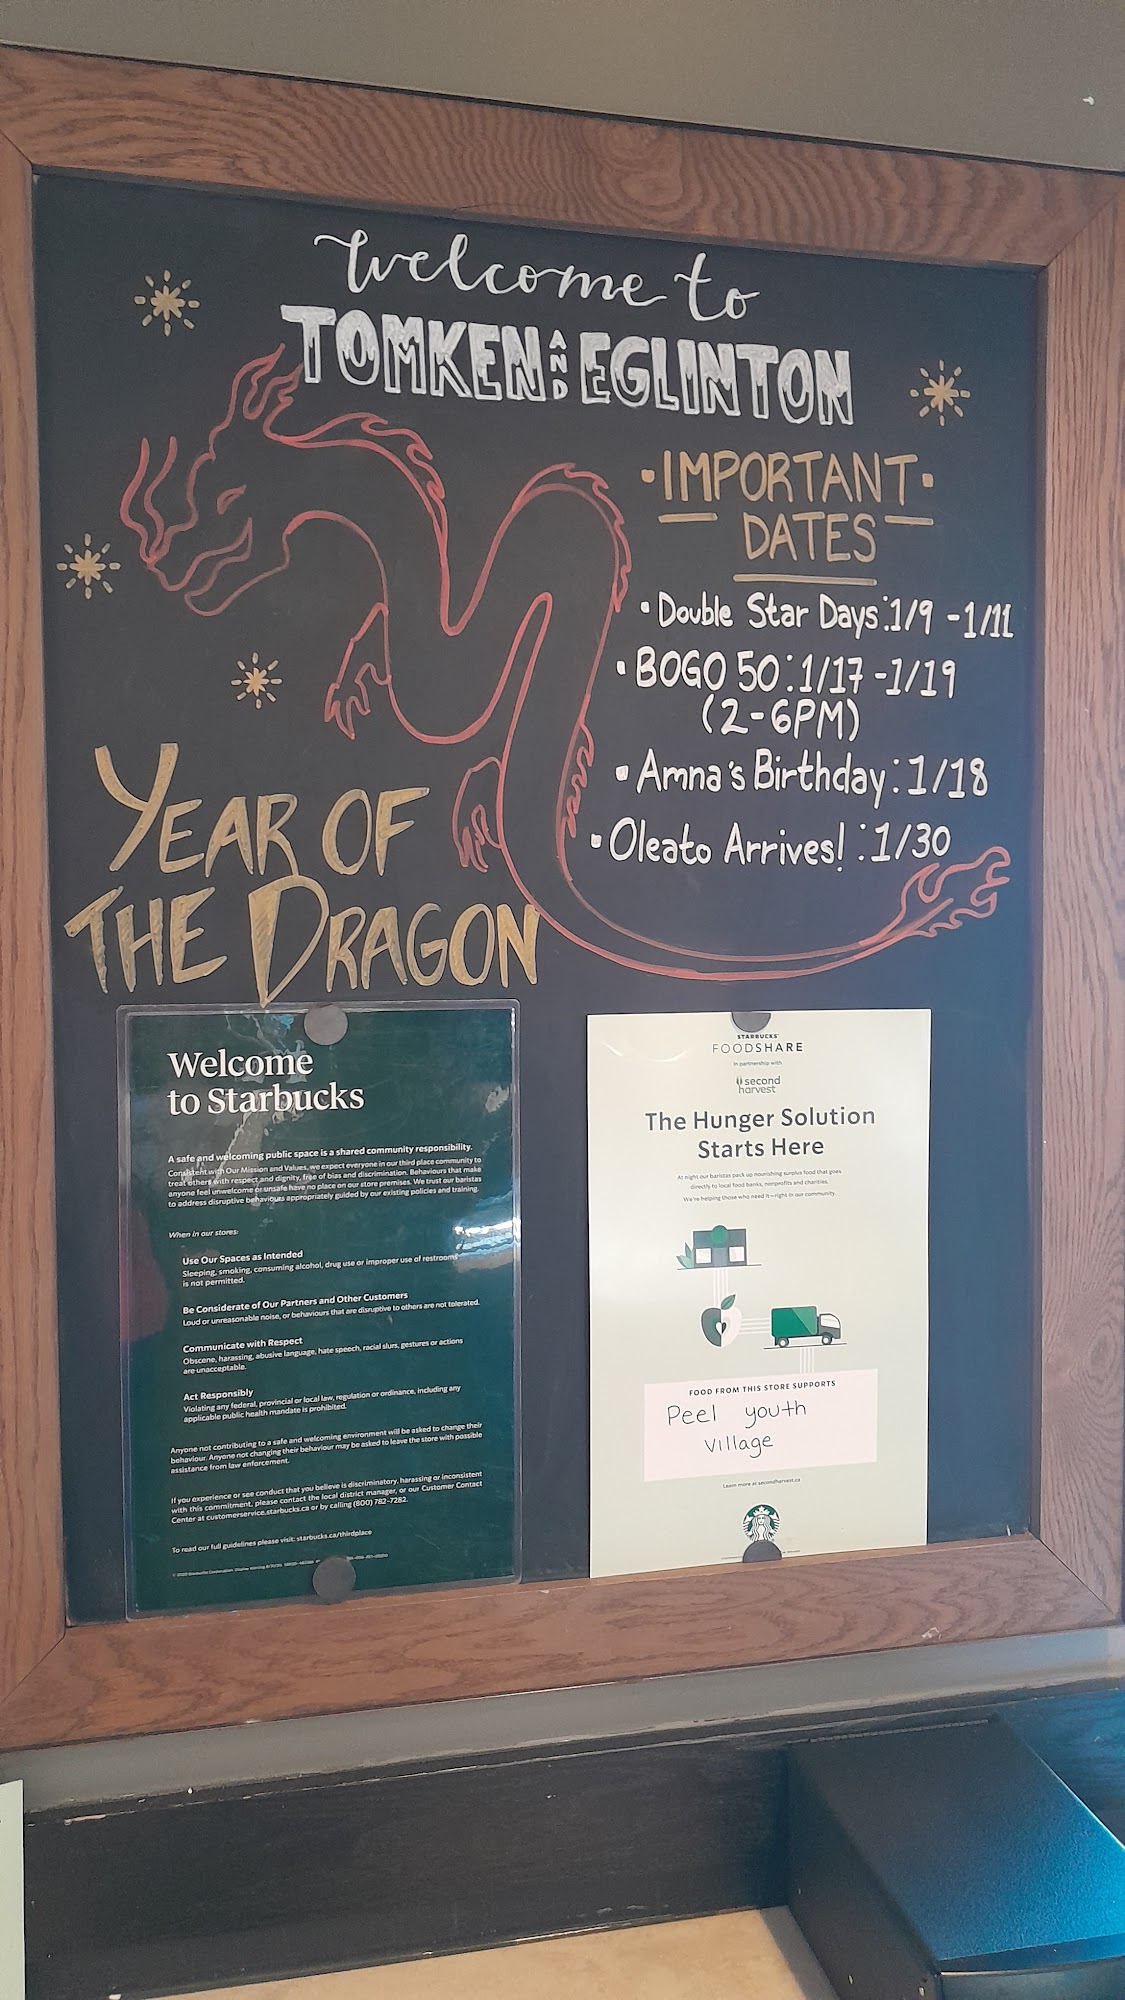 Welcome to
TOMKEN AND EGLINTON
• IMPORTANT •
DATES
• Double Star Days: 1/9 - 1/11
• BOGO 50: 1/17 - 1/19
(2-6PM)
• Amna's Birthday: 1/18
• Oleato Arrives! : 1/30
YEAR OF
THE DRAGON
Welcome
to Starbucks
A safe and welcoming public space is a shared community responsibility.
Consistent with Our Mission and Values, we expect everyone in our third place community to
treat others with respect and dignity, free of bias and discrimination. Behaviours that make
anyone feel unwelcome or unsafe have no place on our store premises. We trust our baristas
to address disruptive behaviours appropriately guided by our existing policies and training.
When in our stores:
Use Our Spaces as Intended
Sleeping, smoking, consuming alcohol, drug use or improper use of restrooms
is not permitted.
Be Considerate of Our Partners and Other Customers
Loud or unreasonable noise, or behaviours that are disruptive to others are not tolerated.
Communicate with Respect
Obscene, harassing, abusive language, hate speech, racial slurs, gestures or actions
are unacceptable.
Act Responsibly
Violating any federal, provincial or local law, regulation or ordinance, including any
applicable public health mandate is prohibited.
Anyone not contributing to a safe and welcoming environment will be asked to change their
behaviour. Anyone not changing their behaviour may be asked to leave the store with possible
assistance from law enforcement.
If you experience or see conduct that you believe is discriminatory, harassing or inconsistent
with this commitment, please contact the local district manager, or our Customer Contact
Center at customerservice.starbucks.ca or by calling (800) 782-7282.
To read our full guidelines please visit: starbucks.ca/thirdplace
STARBUCKS
FOODSHARE
in partnership with
second
harvest
The Hunger Solution
Starts Here
At night our baristas pack up nourishing surplus food that goes
directly to local food banks, nonprofits and charities.
We're helping those who need it—right in our community.
FOOD FROM THIS STORE SUPPORTS
Peel youth
village
Learn more at secondharvest.ca